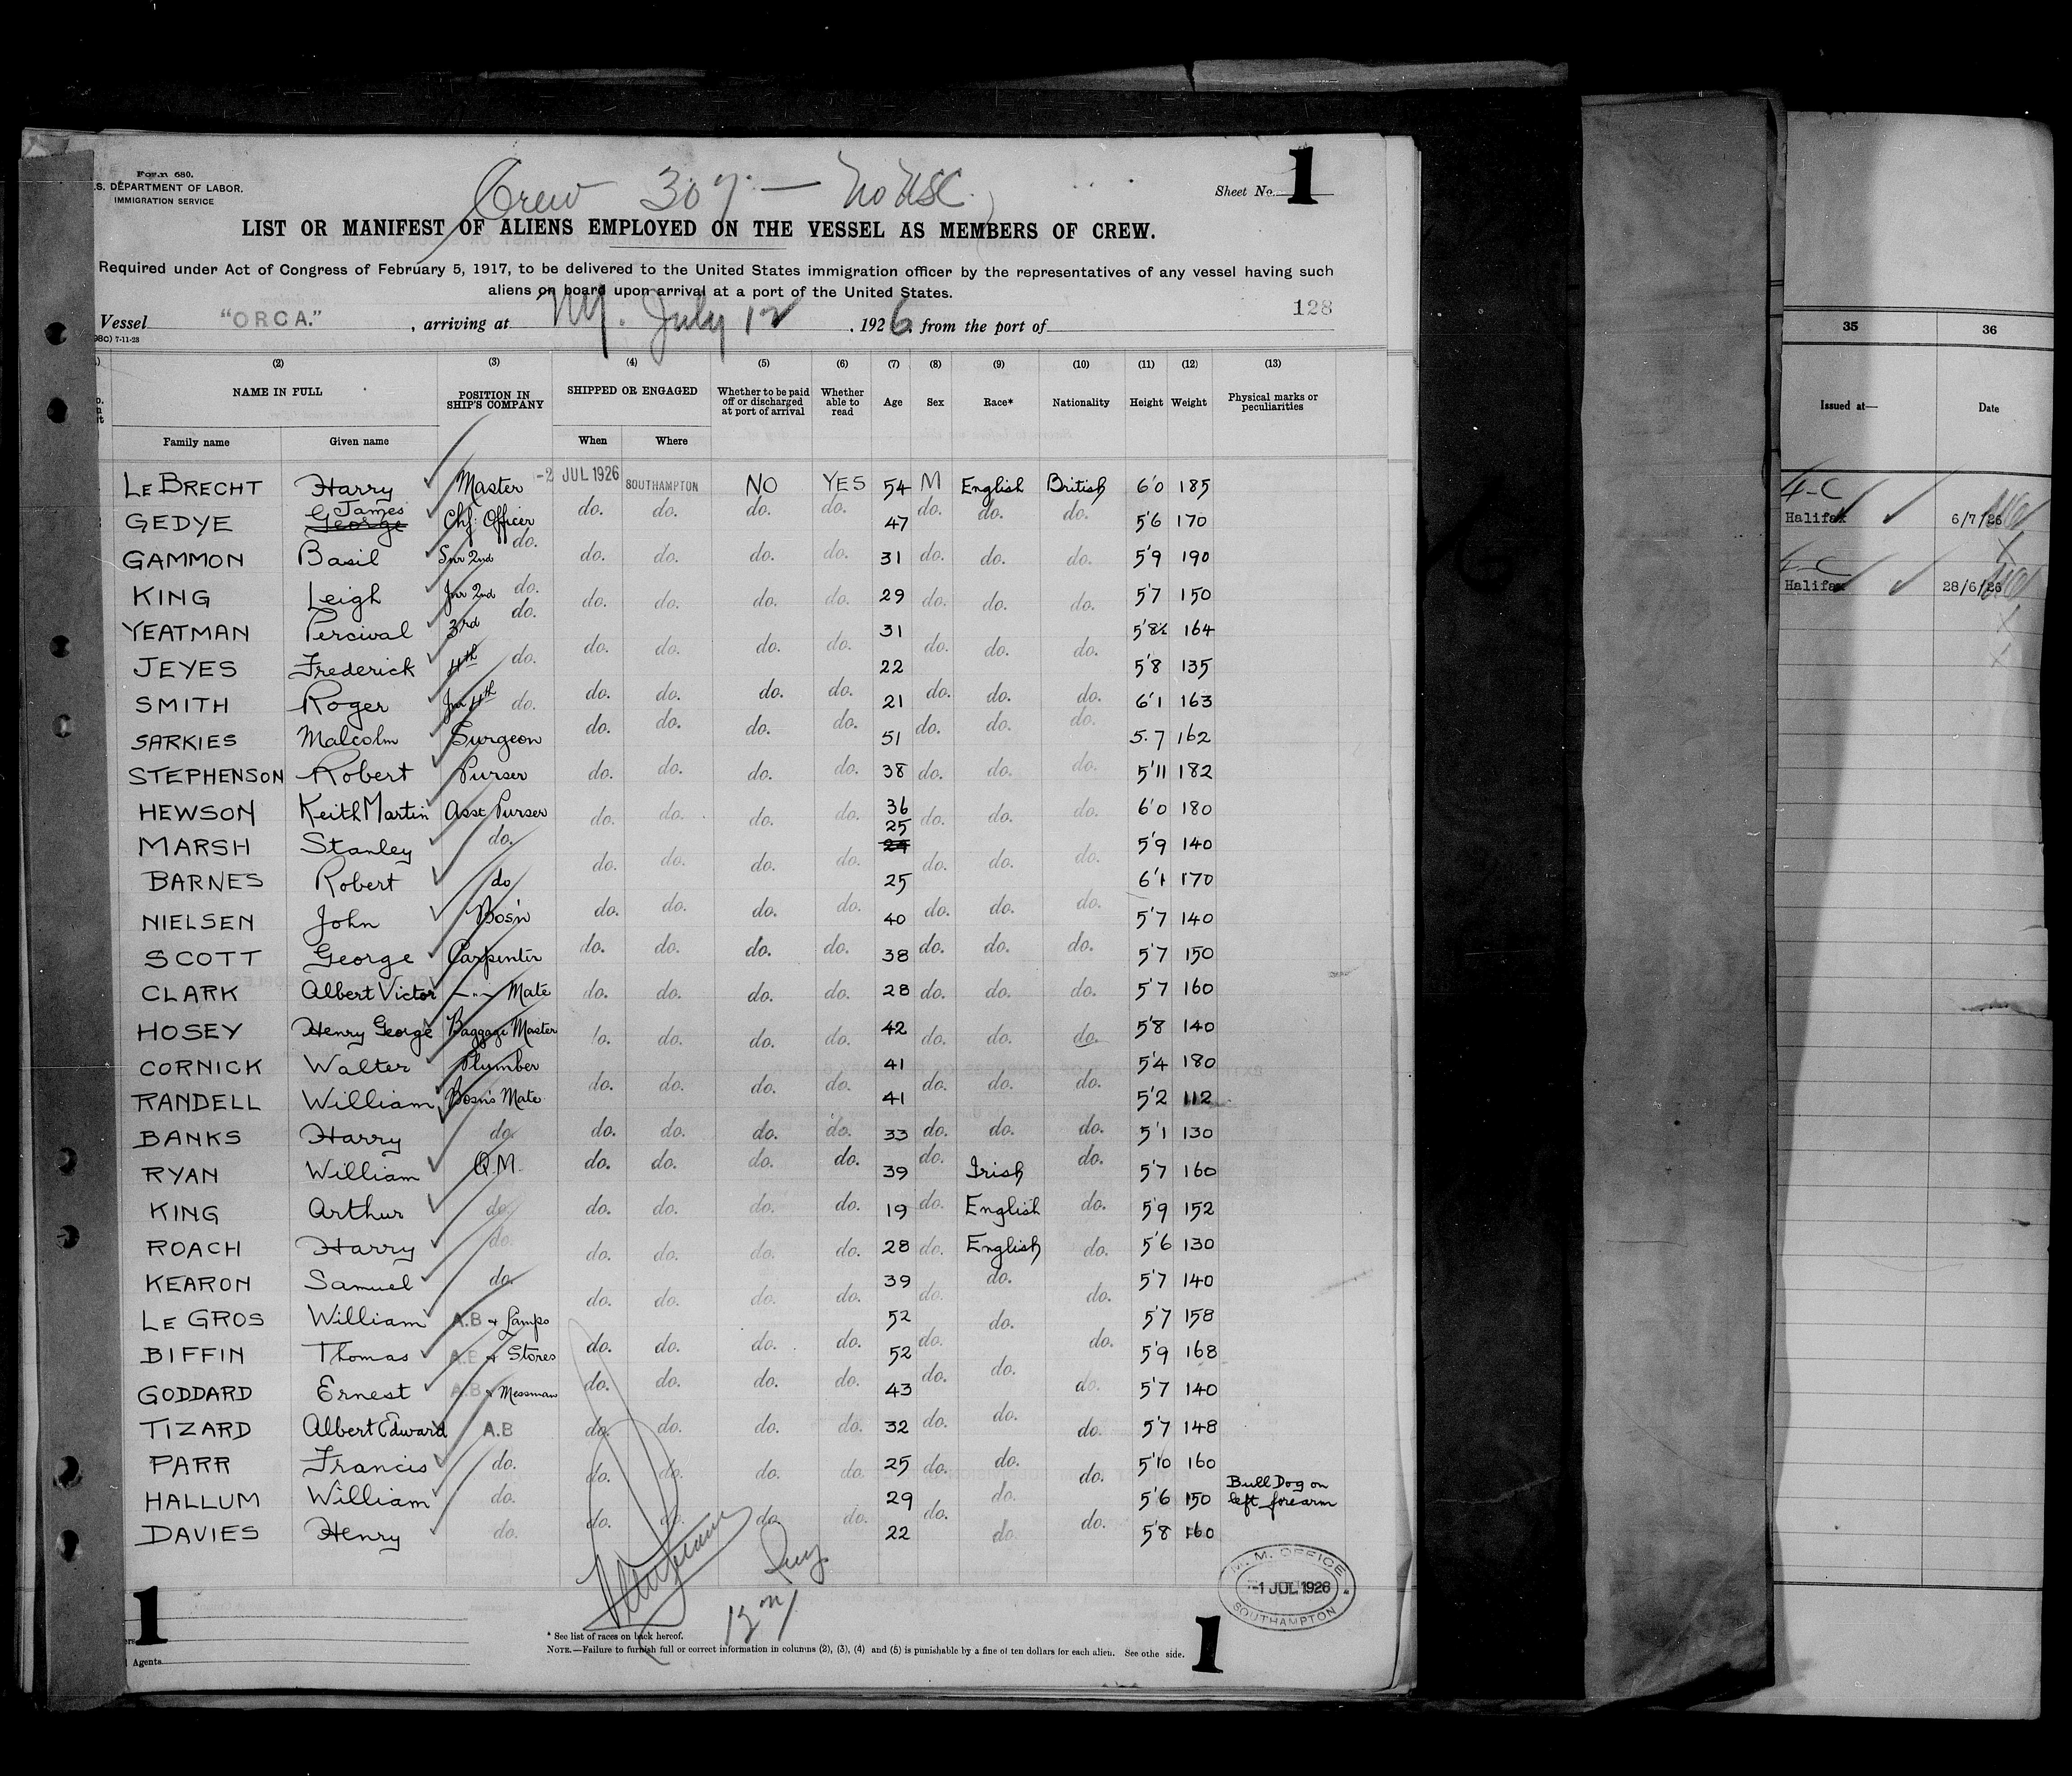 Crew 307 — No USC
Form 680.
.S. DEPARTMENT OF LABOR.
IMMIGRATION SERVICE
Sheet No. 1
LIST OR MANIFEST OF ALIENS EMPLOYED ON THE VESSEL AS MEMBERS OF CREW.
Required under Act of Congress of February 5, 1917, to be delivered to the United States immigration officer by the representatives of any vessel having such
aliens on board upon arrival at a port of the United States.
128
Vessel "ORCA." , arriving at NY. July 12 , 1926, from the port of
98C) 7-11-23
(2) (3) (4) (5) (6) (7) (8) (9) (10) (11) (12) (13)
NAME IN FULL POSITION IN SHIP'S COMPANY SHIPPED OR ENGAGED Whether to be paid off or discharged at port of arrival Whether able to read Age Sex Race* Nationality Height Weight Physical marks or peculiarities
Family name Given name When Where
LE BRECHT Harry Master -2 JUL 1926 SOUTHAMPTON NO YES 54 M English British 6'0 185
GEDYE James George Chf: Officer do. do. do. do. 47 do. do. do. 5'6 170
GAMMON Basil Snr 2nd do. do. do. do. do. 31 do. do. do. 5'9 190
KING Leigh Jnr 2nd do. do. do. do. do. 29 do. do. do. 5'7 150
YEATMAN Percival 3rd do. 31 5'8½ 164
JEYES Frederick 4th do. do. do. do. do. 22 do. do. do. 5'8 135
SMITH Roger Jnr 4th do. do. do. do. do. 21 do. do. do. 6'1 163
SARKIES Malcolm Surgeon do. do. do. do. 51 do. do. do. 5.7 162
STEPHENSON Robert Purser do. do. do. do. 38 do. do. do. 5'11 182
HEWSON Keith Martin Asst Purser do. do. do. do. 36 do. do. do. 6'0 180
MARSH Stanley do. do. do. do. do. 25 24 do. do. do. 5'9 140
BARNES Robert do 25 6'1 170
NIELSEN John Bos'n do. do. do. do. 40 do. do. do. 5'7 140
SCOTT George Carpenter do. do. do. do. 38 do. do. do. 5'7 150
CLARK Albert Victor —"— Mate do. do. do. do. 28 do. do. do. 5'7 160
HOSEY Henry George Baggage Master do. do. do. do. 42 do. do. do. 5'8 140
CORNICK Walter Plumber 41 5'4 180
RANDELL William Bosn's Mate do. do. do. do. 41 do. do. do. 5'2 112
BANKS Harry do. do. do. do. do. 33 do. do. do. 5'1 130
RYAN William Q.M. do. do. do. do. 39 do. Irish do. 5'7 160
KING Arthur do. do. do. do. do. 19 do. English do. 5'9 152
ROACH Harry do. do. do. do. do. 28 do. English do. 5'6 130
KEARON Samuel do. 39 do. 5'7 140
LE GROS William A.B & Lamps do. do. do. do. 52 do. do. do. 5'7 158
BIFFIN Thomas A.B & Stores do. do. do. do. 52 do. do. 5'9 168
GODDARD Ernest A.B & Messman do. do. do. do. 43 do. do. do. 5'7 140
TIZARD Albert Edward A.B do. do. do. do. 32 do. do. do. 5'7 148
PARR Francis do. do. do. do. do. 25 do. do. do. 5'10 160
HALLUM William do. 29 do. 5'6 150 Bull Dog on left forearm
DAVIES Henry do. do. do. do. do. 22 do. do. do. 5'8 160
M. M. OFFICE
-1 JUL 1926
SOUTHAMPTON
1
1
Agents
* See list of races on back hereof.
NOTE.—Failure to furnish full or correct information in columns (2), (3), (4) and (5) is punishable by a fine of ten dollars for each alien. See othe side.
35 36
Issued at— Date
4-C
Halifax 6/7/26
4-C
Halifax 28/6/26